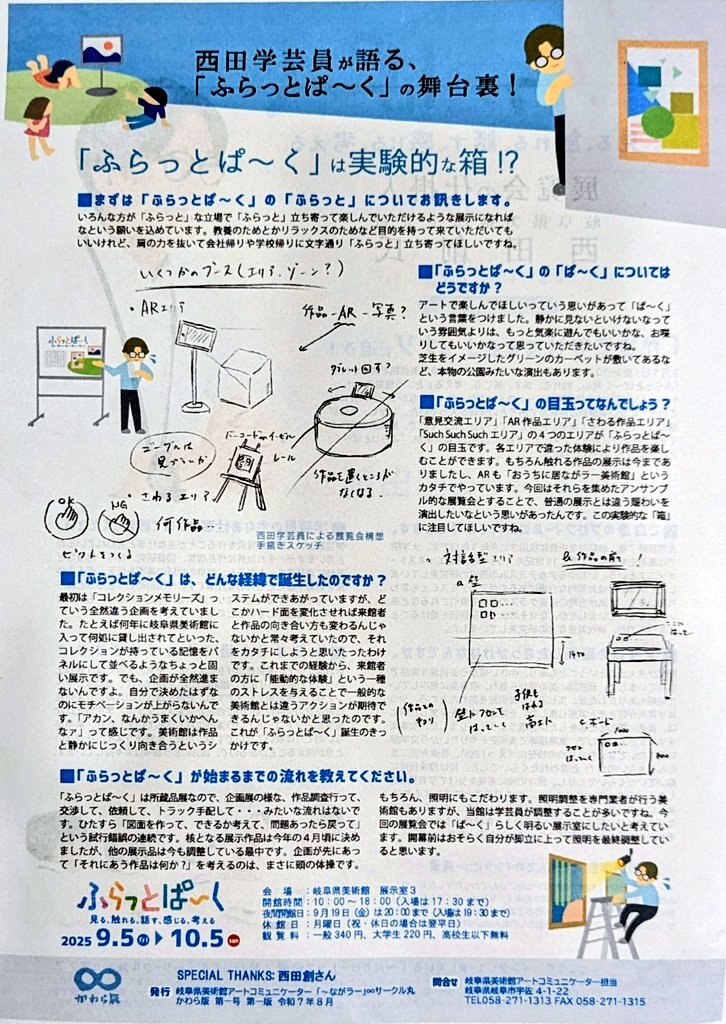 西田学芸員が語る、
「ふらっとぱ〜く」の舞台裏！
「ふらっとぱ〜く」は実験的な箱!?
■まずは「ふらっとぱ〜く」の「ふらっと」についてお訊きします。
いろんな方が「ふらっと」な立場で「ふらっと」立ち寄って楽しんでいただけるような展示になれば
なという願いを込めています。教養のためとかリラックスのためなど目的を持って来ていただいても
いいけれど、肩の力を抜いて会社帰りや学校帰りに文字通り「ふらっと」立ち寄ってほしいですね。
いくつかのブース(エリア、ゾーン?)
・ARエリア
作品-AR-写真?
タブレット回す?
ゴーグルは
見づらいか
バーコードonイーゼル
レール
作品を置くところが
なくなる
・さわるエリア
何作品
OK
NG
ヒントをつくる
西田学芸員による展覧会構想
手描きスケッチ
ふらっとぱ〜く
■「ふらっとぱ〜く」の「ぱ〜く」については
どうですか？
アートで楽しんでほしいっていう思いがあって「ぱ〜く」
という言葉をつけました。静かに見ないといけないなってい
う雰囲気よりは、もっと気楽に遊んでもいいかな、お喋
りしてもいいかなって思っていただきたいですね。
芝生をイメージしたグリーンのカーペットが敷いてあるな
ど、本物の公園みたいな演出もあります。
■「ふらっとぱ〜く」の目玉ってなんでしょう？
「意見交流エリア」「AR作品エリア」「さわる作品エリア」
「Such Such Suchエリア」の４つのエリアが「ふらっとぱ〜
く」の目玉です。各エリアで違った体験により作品を楽し
むことができます。もちろん触れる作品の展示は今まであ
りましたし、ARも「おうちに居ながラー美術館」という
カタチでやっています。今回はそれらを集めたアンサンブ
ル的な展覧会とすることで、普通の展示とは違う賑わいを
演出したいなという思いがあったんです。この実験的な「箱」
に注目してほしいですね。
・対話型エリア
&作品の前!
a 壁
壁にフセンで
はっていく
子供も
はれる
高さに
c ボード
フセン
はっていく
■「ふらっとぱ〜く」は、どんな経緯で誕生したのですか？
最初は「コレクションメモリーズ」っ
ていう全然違う企画を考えていまし
た。たとえば何年に岐阜県美術館に
入って何処に貸し出されてといった、
コレクションが持っている記憶をパ
ネルにして並べるようなちょっと固
い展示です。でも、企画が全然進ま
ないんですよ。自分で決めたはずな
のにモチベーションが上がらないんで
す。「アカン、なんかうまくいかへん
なァ」って感じです。美術館は作品
と静かにじっくり向き合うというシ
ステムができあがっていますが、ど
こかハード面を変化させれば来館者
と作品の向き合い方も変わるんじゃな
いかと常々考えていたので、それ
をカタチにしようと思いたったわけ
です。これまでの経験から、来館者
の方に「能動的な体験」という一種
のストレスを与えることで一般的な
美術館とは違うアクションが期待で
きるんじゃないかと思ったのです。
これが「ふらっとぱ〜く」誕生のきっ
かけです。
■「ふらっとぱ〜く」が始まるまでの流れを教えてください。
「ふらっとぱ〜く」は所蔵品展なので、企画展の様な、作品調査行って、
交渉して、依頼して、トラック手配して・・・みたいな流れはないで
す。ひたすら「図面を作って、できるか考えて、問題あったら戻って」
という試行錯誤の連続です。核となる展示作品は今年の４月頃に決め
ましたが、他の展示品は今も調整している最中です。企画が先にあっ
て「それにあう作品は何か？」を考えるのは、まさに頭の体操です。
もちろん、照明にもこだわります。照明調整を専門業者が行う美
術館もありますが、当館は学芸員が調整することが多いですね。今
回の展覧会では「ぱ〜く」らしく明るい展示室にしたいと考えてい
ます。開幕前はおそらく自分が脚立に上って照明を最終調整してい
ると思います。
ふらっとぱ〜く
見る、触れる、話す、感じる、考える
2025 9.5㊎▶10.5 SUN
会　場　：岐阜県美術館　展示室３
開館時間：10：00〜18：00（入場は17：30まで）
夜間開館日：9月19日（金）は20:00まで（入場は19:30まで）
休館日　：月曜日（祝・休日の場合は翌平日）
観覧料　：一般340円、大学生220円、高校生以下無料
かわら版
SPECIAL THANKS: 西田創さん
発行　岐阜県美術館アートコミュニケーター「〜ながラー」ooサークル丸
かわら版　第一号　第一版　令和７年８月
問合せ　岐阜県美術館アートコミュニケーター担当
岐阜県岐阜市宇佐4-1-22
TEL058-271-1313 FAX 058-271-1315